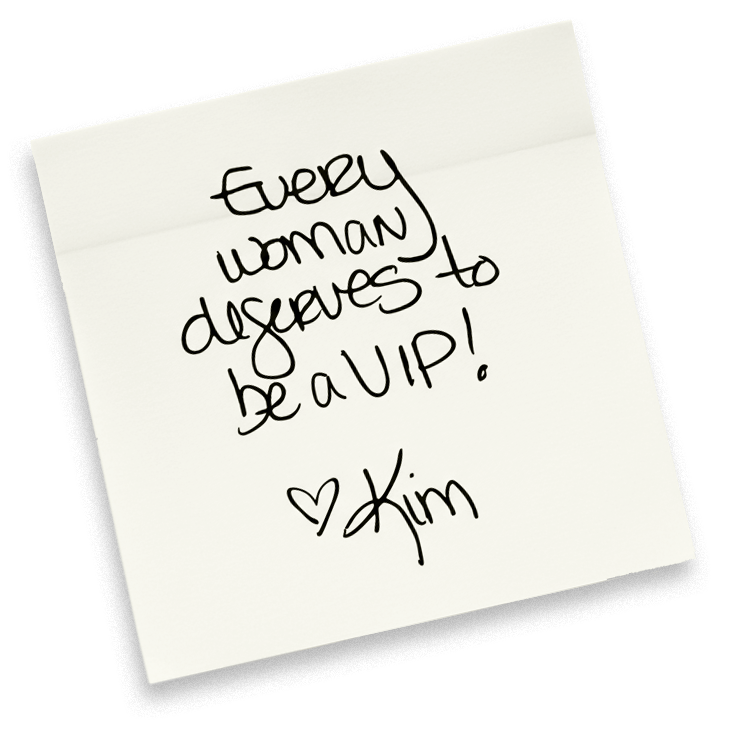 Every
woman
deserves to
be a VIP!
♡ Kim